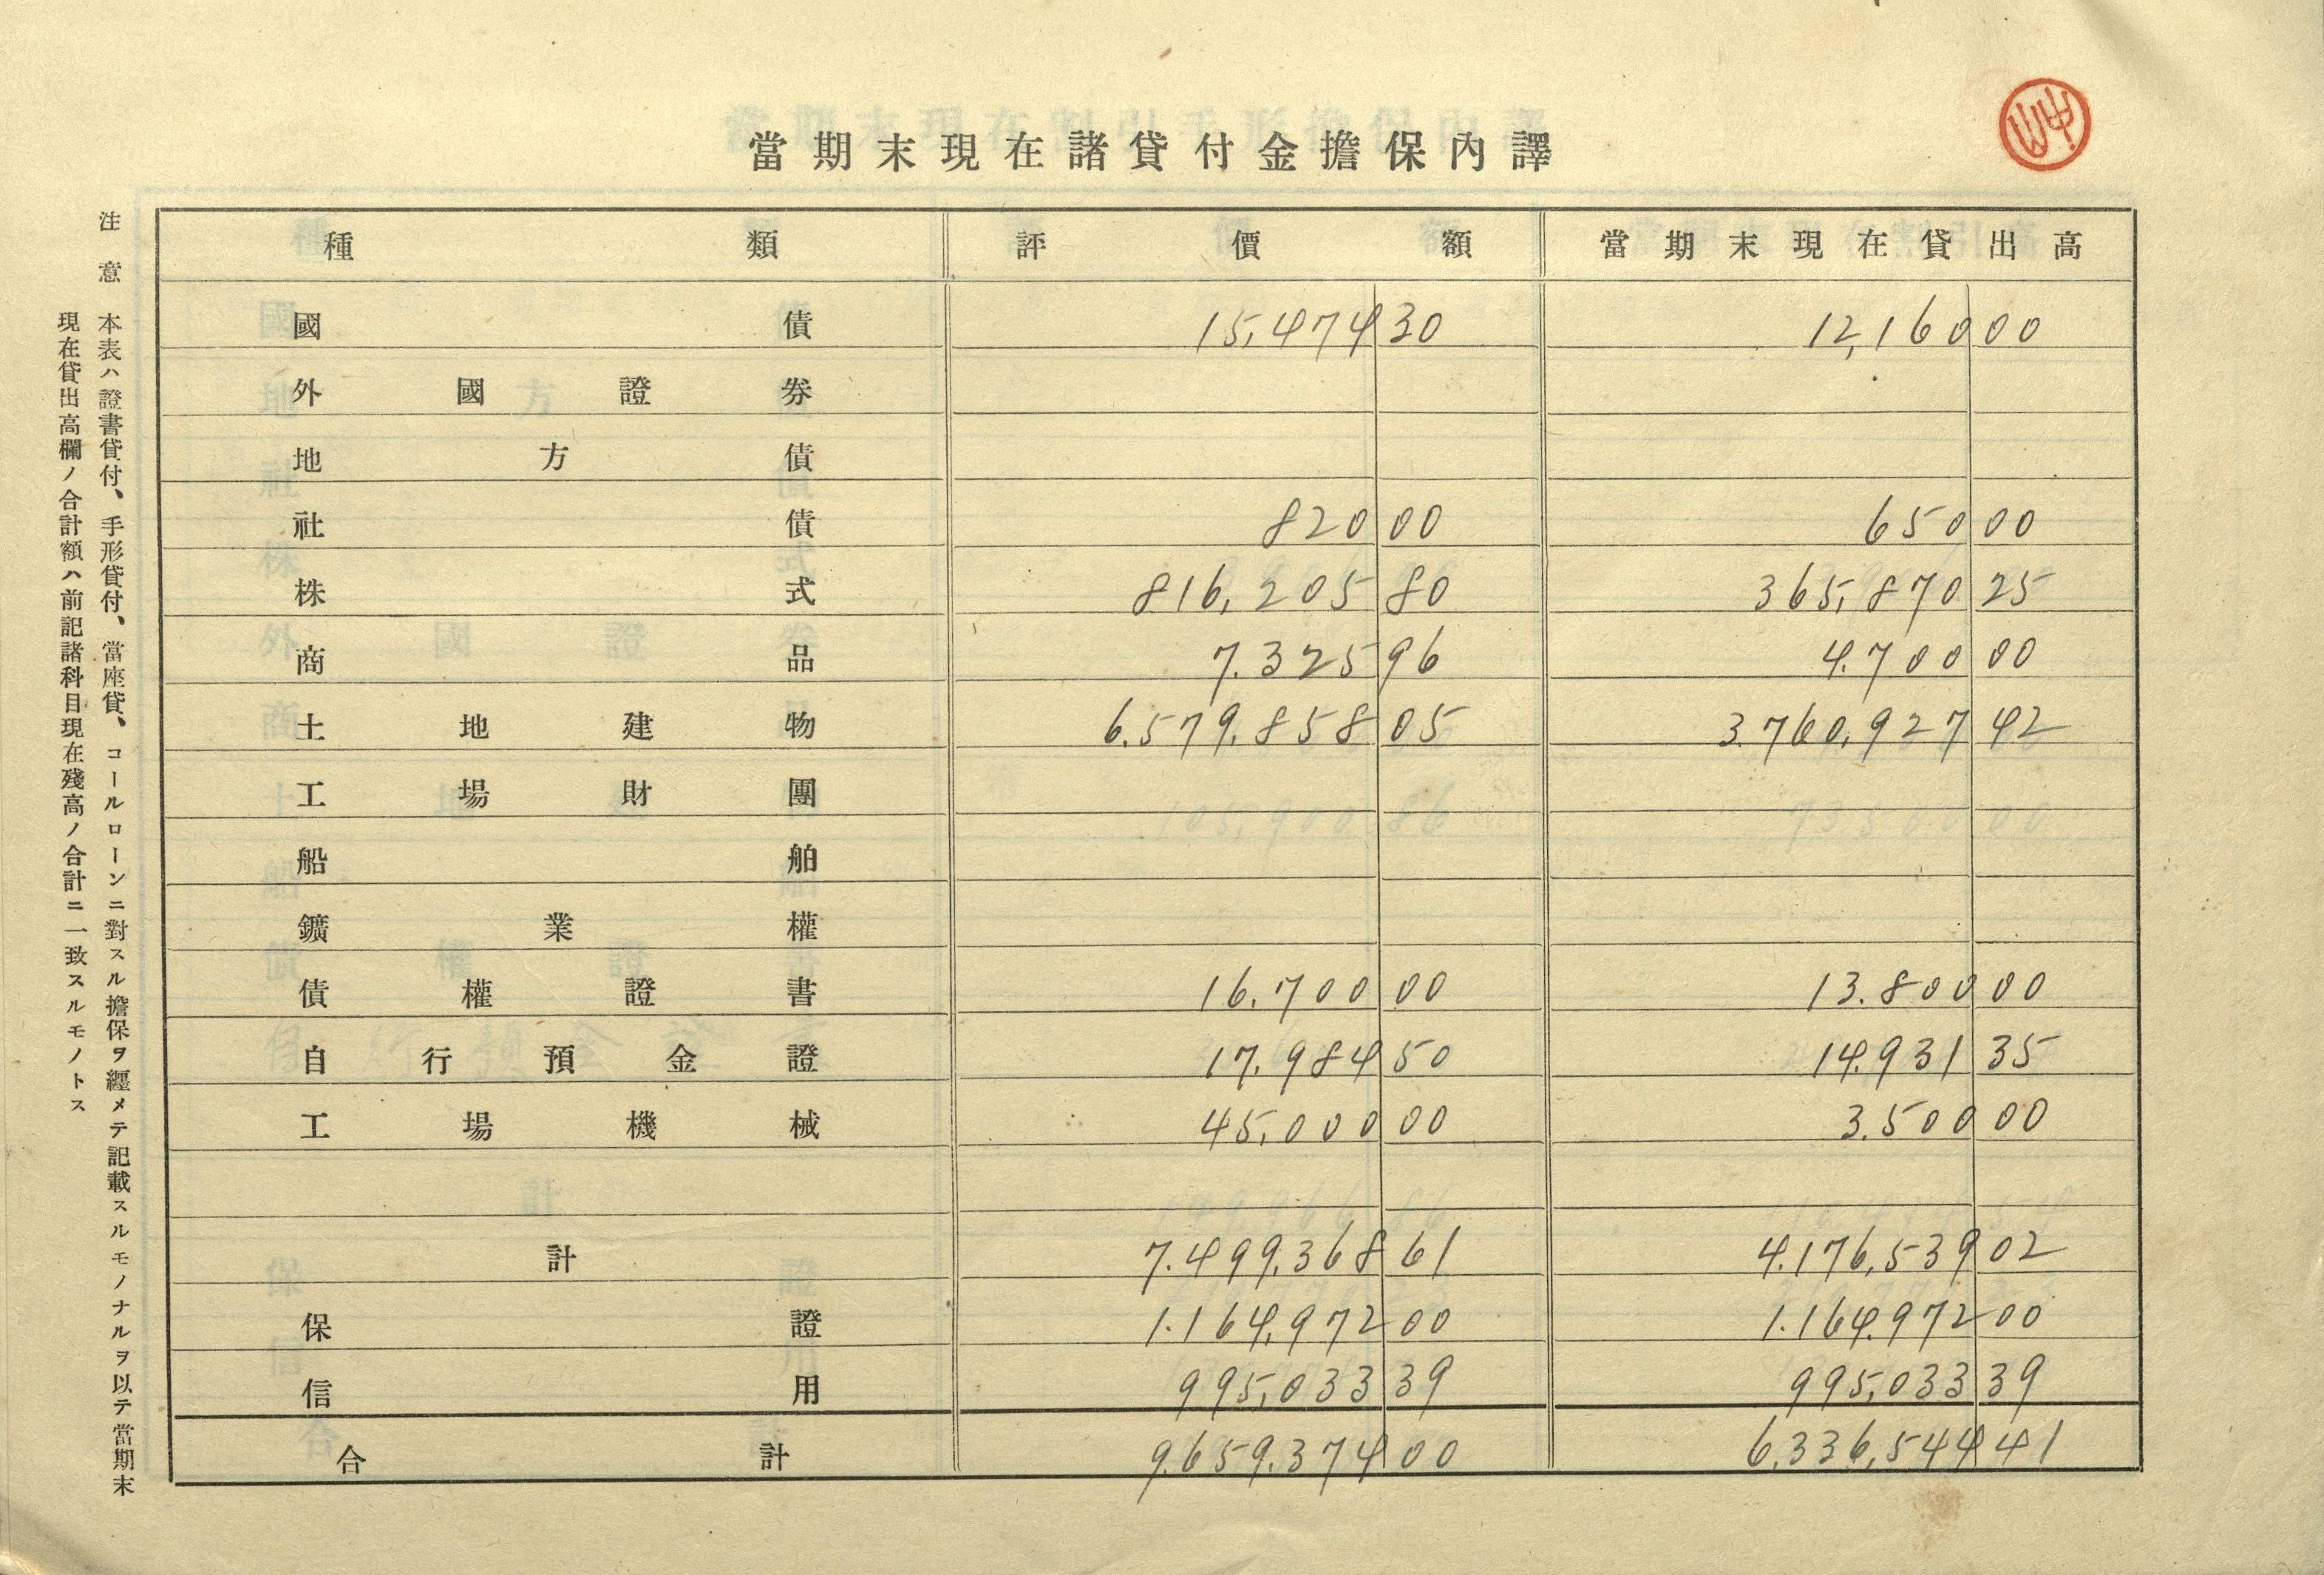 當期末現在諸貸付金擔保內譯
種類 評價額 當期末現在貸出高
國債 15,474 30 12,160 00
外國證券
地方債
社債 820 00 650 00
株式 816,205 80 365,870 25
商品 7.325 96 4.700 00
土地建物 6.579.858 05 3.760,927 42
工場財團
船舶
鑛業權
債權證書 16.700 00 13.800 00
自行預金證 17.984 50 14.931 35
工場機械 45,000 00 3.500 00
計 7.499.368 61 4.176,539 02
保證 1.164,972 00 1.164.972 00
信用 995,033 39 995,033 39
合計 9.659.374 00 6,336,544 41
注意 本表ハ證書貸付、手形貸付、當座貸、コールローンニ對スル擔保ヲ纒メテ記載スルモノナルヲ以テ當期末
現在貸出高欄ノ合計額ハ前記諸科目現在殘高ノ合計ニ一致スルモノトス